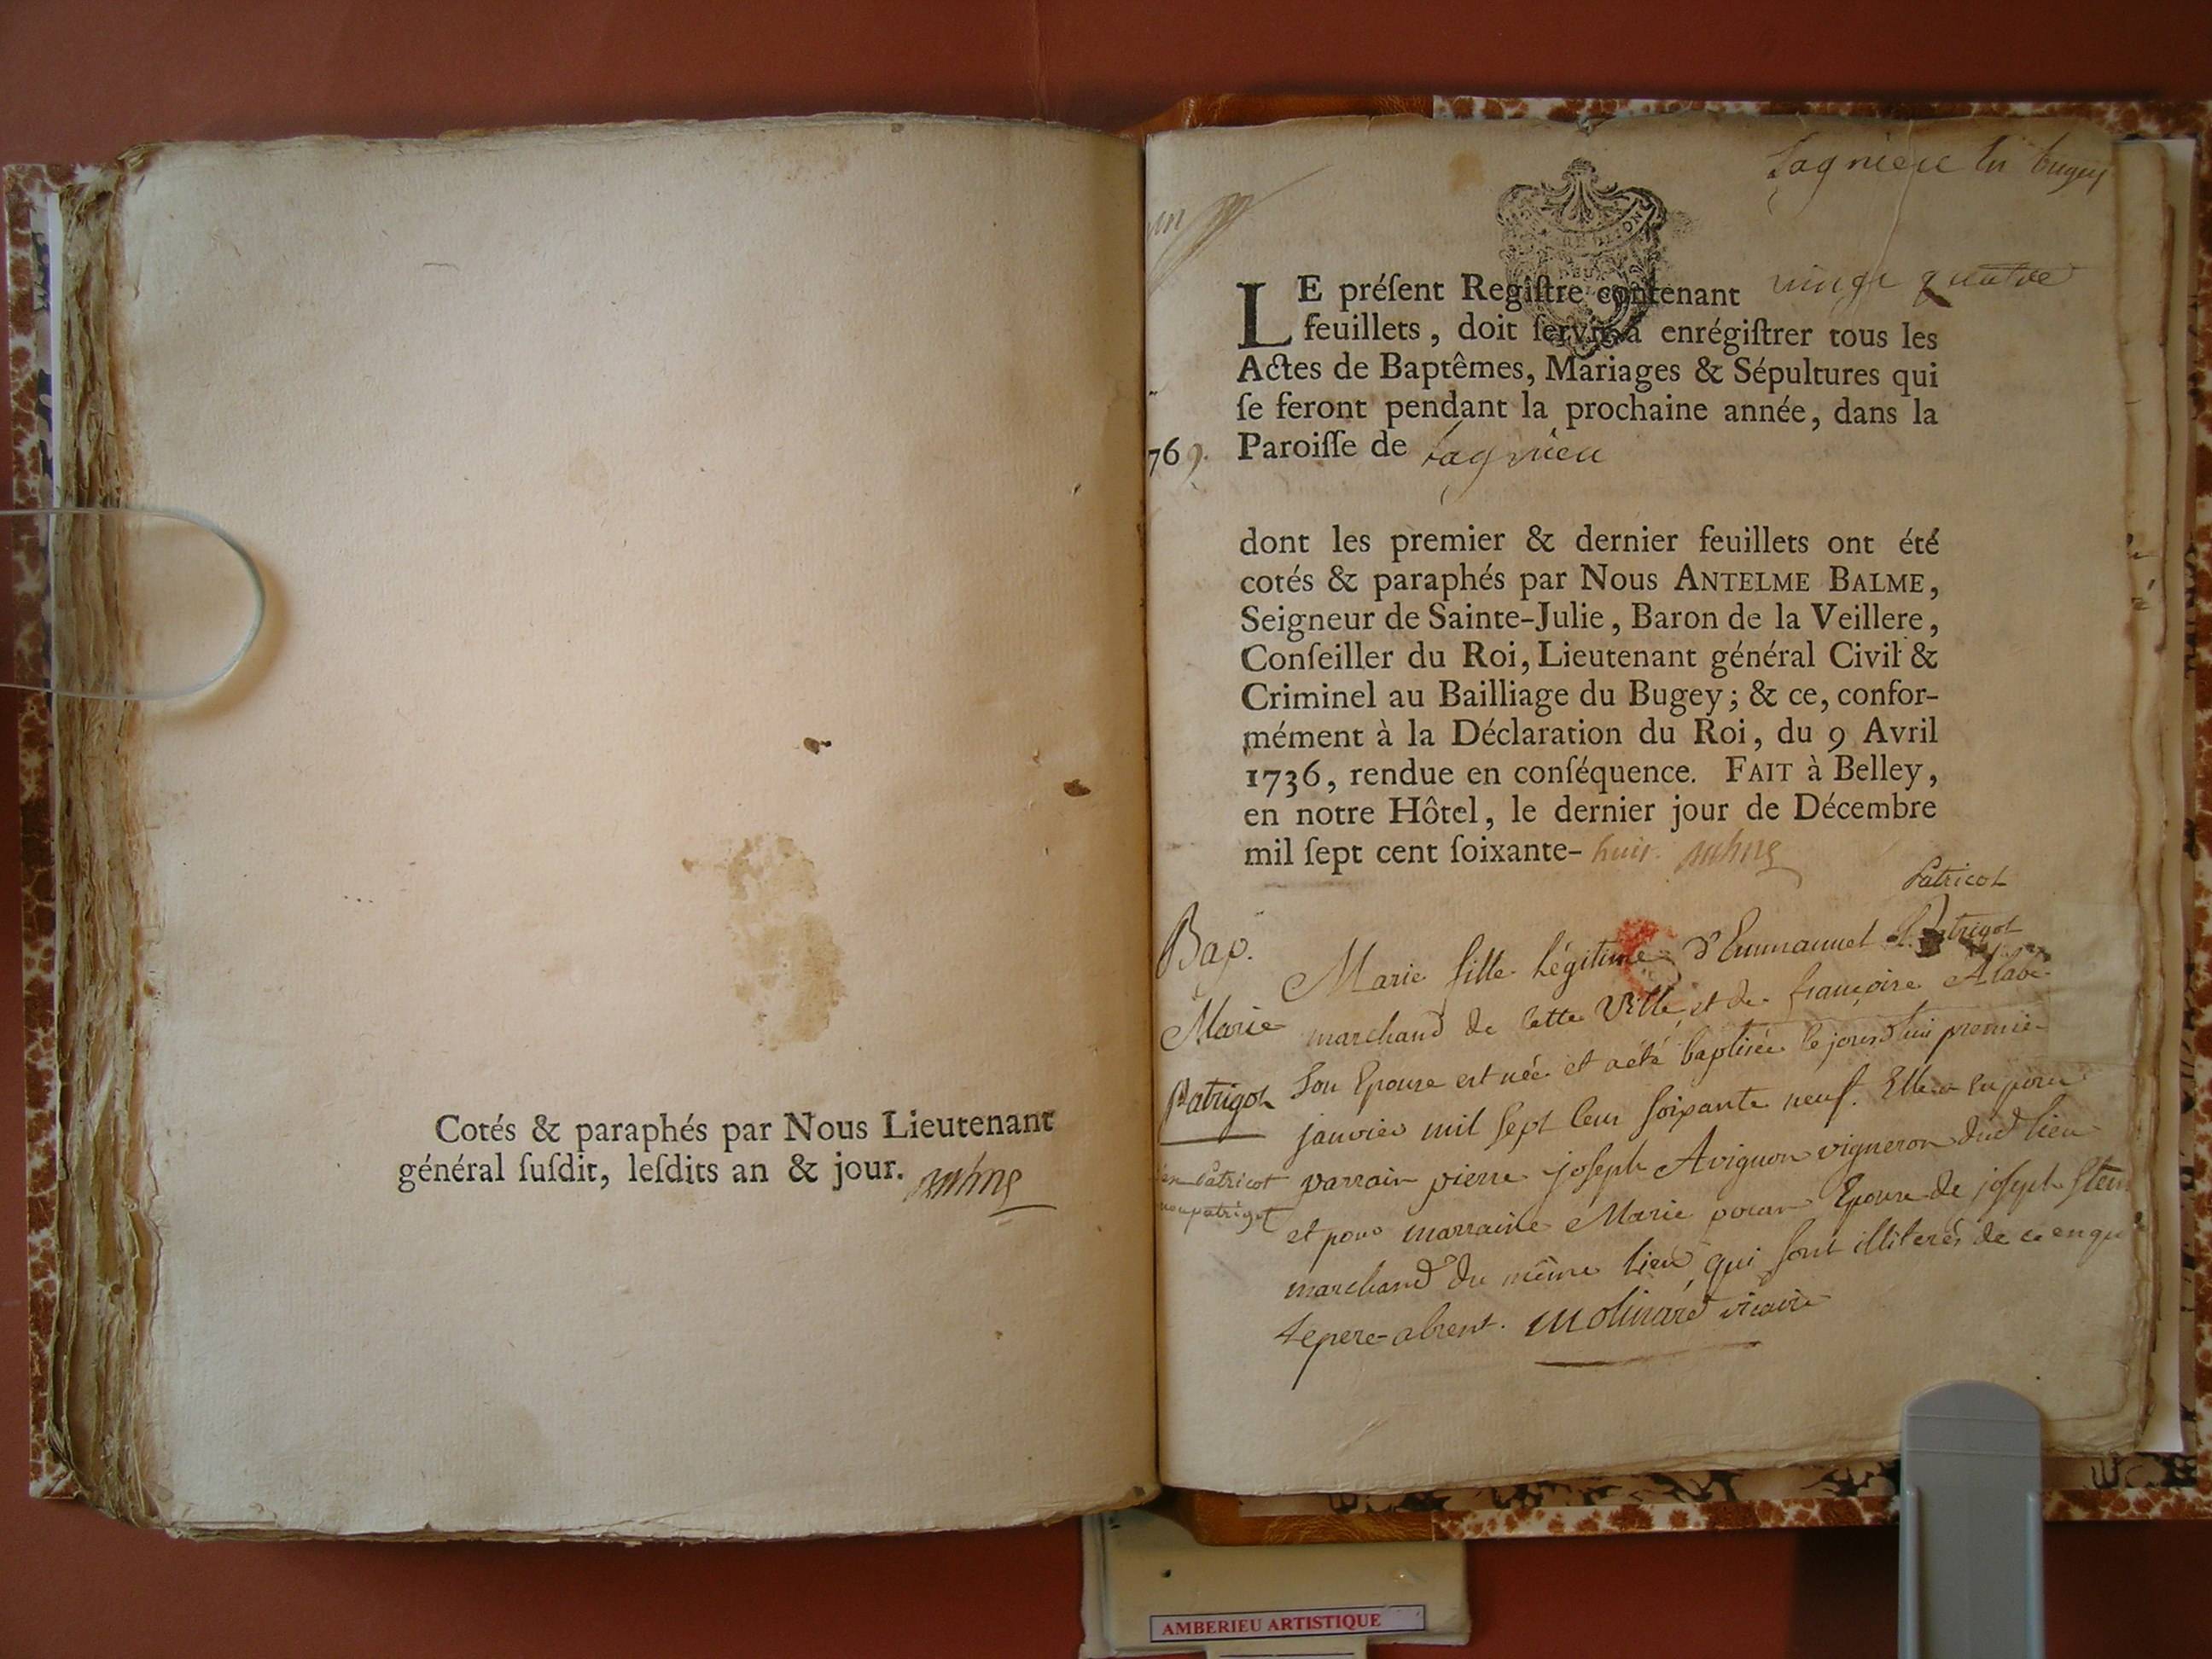 Cotés & paraphés par Nous Lieutenant
général ſuſdit, leſdits an & jour.
Lagnieu en bugey
LE préſent Regiſtre contenant vingt quatre
feuillets, doit ſervir à enrégiſtrer tous les
Actes de Baptêmes, Mariages & Sépultures qui
ſe feront pendant la prochaine année, dans la
769. Paroiſſe de Lagnieu
dont les premier & dernier feuillets ont été
cotés & paraphés par Nous ANTELME BALME,
Seigneur de Sainte-Julie, Baron de la Veillere,
Conſeiller du Roi, Lieutenant général Civil &
Criminel au Bailliage du Bugey; & ce, confor-
mément à la Déclaration du Roi, du 9 Avril
1736, rendue en conſéquence. FAIT à Belley,
en notre Hôtel, le dernier jour de Décembre
mil ſept cent ſoixante- huit.
Patricot
Bap.
Marie
Patrigot
Patricot
patrigot
Marie fille légitime d'Emmanuel Patrigot
marchand de cette Ville et de françoise
son Epouse est née et a été baptisée cejourd'hui premier
janvier mil sept cent soixante neuf. Elle a eu pour
parrain pierre joseph Avignon vigneron dud lieu
et pour marraine Marie Epouse de joseph
marchand du même lieu qui sont illiterés de ce enquis
le pere absent. Molinard vicaire
AMBERIEU ARTISTIQUE